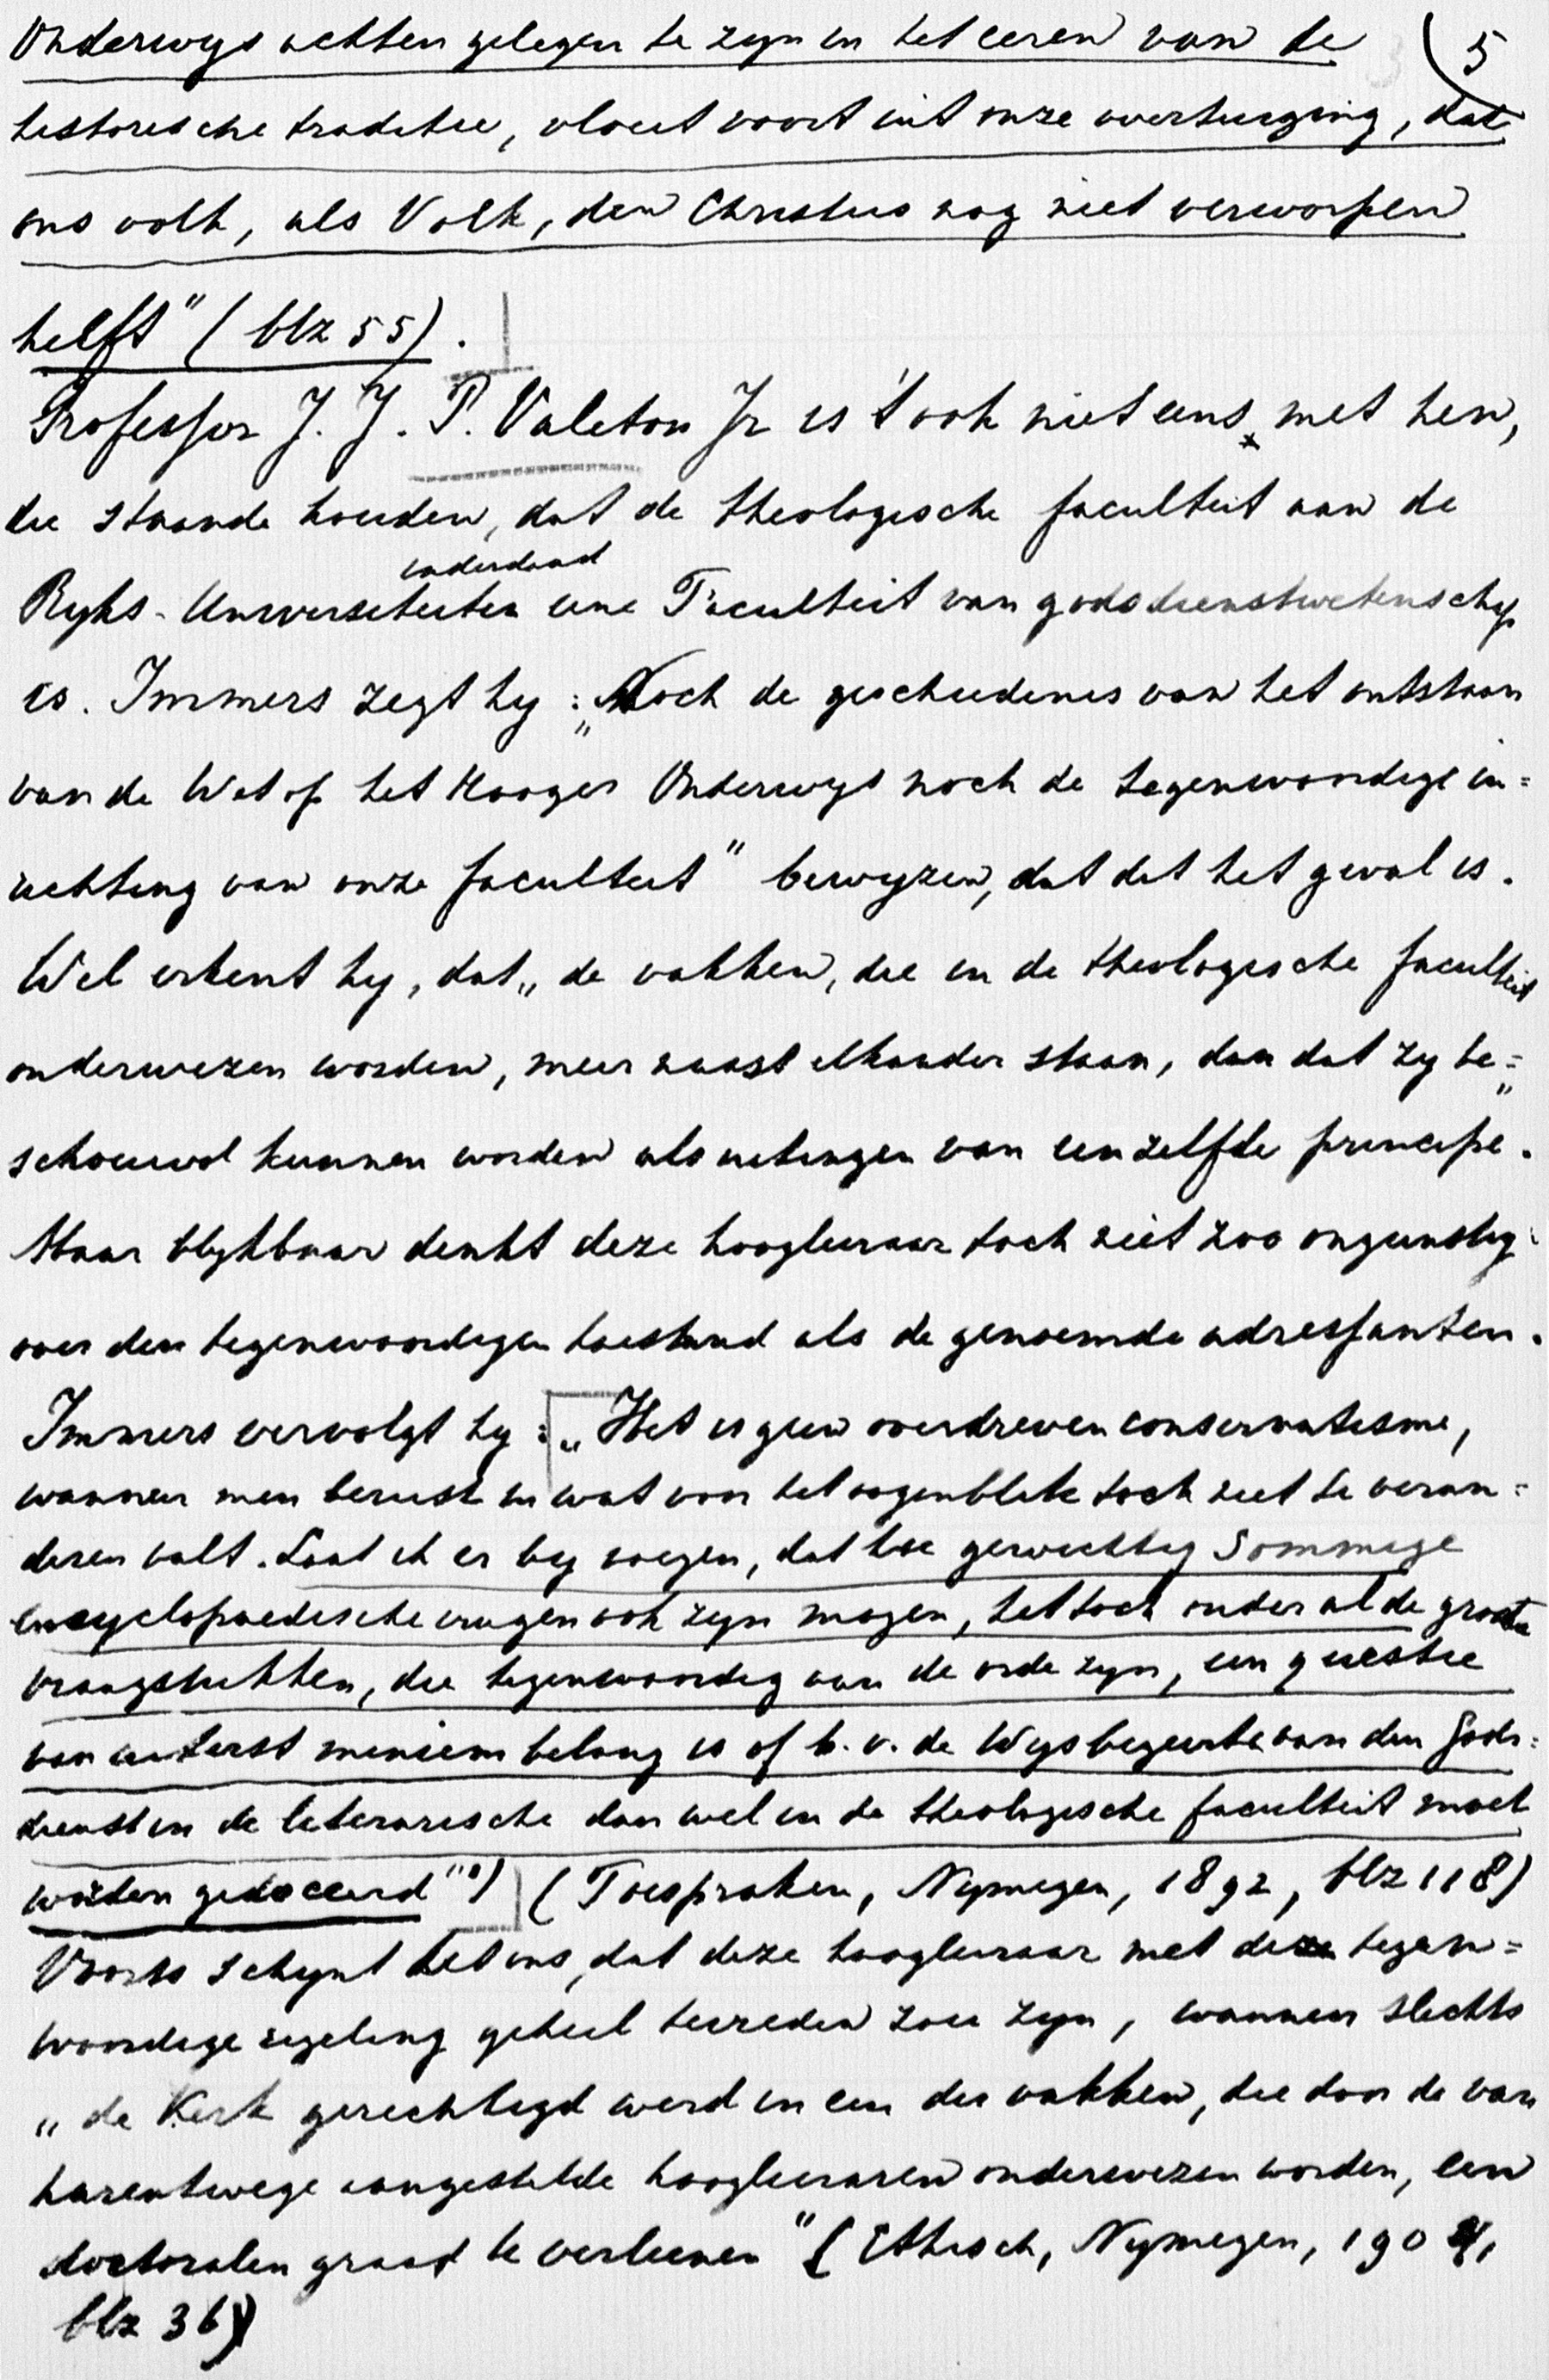 Onderwys achten gelegen te zyn in het eeren van de 5
historische traditie, vloeit voort uit onze overtuiging, dat
ons volk, als Volk, den Christus nog niet verworpen
heeft" (blz 55).
Professor J. J. P. Valeton Jr is 't ook niet eens met hen,
die staande houden, dat de theologische faculteit aan de
inderdaad
Ryks-Universiteiten eene Faculteit van godsdienstwetenschap
is. Immers zegt hy: „Noch de geschiedenis van het ontstaan
van de Wet op het Hooger Onderwys noch de tegenwoordige in=
richting van onze faculteit" bewyzen, dat dit het geval is.
Wel erkent hy, dat „de vakken, die in de theologische faculteit
onderwezen worden, meer naast elkander staan, dan dat zy be=
schouwd kunnen worden als uitingen van eenzelfde principe."
Maar blykbaar denkt deze hoogleeraar toch niet zoo ongunstig
over den tegenwoordigen toestand als de genoemde adressanten.
Immers vervolgt hy: „Het is geen overdreven conservatisme,
wanneer men berust in wat voor het oogenblik toch niet te veran=
deren valt. Laat ik er by voegen, dat hoe gewichtig sommige
encyclopaedische vragen ook zyn mogen, het toch onder al de groote
vraagstukken, die tegenwoordig aan de orde zyn, een questie
van uiterst miniem belang is of b.v. de Wysbegeerte van den Gods=
dienst in de literarische dan wel in de theologische faculteit moet
worden gedoceerd") (Toespraken, Nymegen, 1892, blz 118)
Voorts schynt het ons, dat deze hoogleeraar met deze tegen=
woordige regeling geheel tevreden zou zyn, wanneer slechts
„de Kerk gerechtigd werd in een der vakken, die door de van
harentwege aangestelde hoogleeraren onderwezen worden, een
doctoralen graad te verleenen" (Ethisch, Nymegen, 1909,
blz 36)